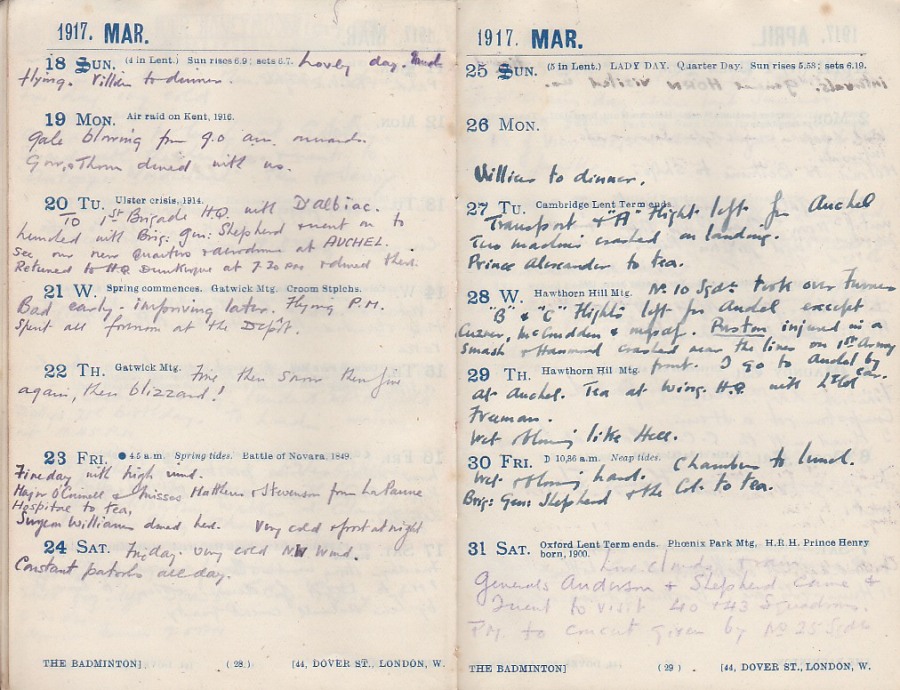 1917. MAR.
18 SUN. (4 in Lent.) Sun rises 6.9; sets 6.7. Lovely day. Much
flying. Villiers to dinner.
19 MON. Air raid on Kent, 1916.
Gale blowing from 9.0 am. onwards.
Gow & Thom dined with us.
20 TU. Ulster crisis, 1914.
To 1st Brigade HQ with D'albiac.
lunched with Brig. Gen: Shepherd & went on to
see our new quarters & aerodrome at AUCHEL.
Returned to HQ Dunkirque at 7.30 pm & dined there.
21 W. Spring commences. Gatwick Mtg. Croom Stplchs.
Bad early - improving later. Flying P.M.
Spent all forenoon at the Depôt.
22 TH. Gatwick Mtg. Fine then Snow then fine
again, then blizzard!
23 FRI. ● 4.5 a.m. Spring tides. Battle of Novara, 1849.
Fine day with high wind.
Major O'Connell & Misses Matthew & Stevenson from La Panne
Hospital to tea.
Surgeon Williams dined here. Very cold & frost at night
24 SAT. Fine day. very cold NW wind.
Constant patrols all day.
THE BADMINTON] (28) [44, DOVER ST., LONDON, W.
1917. MAR.
25 SUN. (5 in Lent.) LADY DAY. Quarter Day. Sun rises 5.53; sets 6.19.
26 MON.
Villiers to dinner.
27 TU. Cambridge Lent Term ends.
Transport & "A" flight left for Auchel
Two machines crashed on landing.
Prince Alexander to tea.
28 W. Hawthorn Hill Mtg. No 10 Sqdn took over Furnes
"B" & "C" Flights left for Auchel except
Culver, McCrudden & myself. Preston injured in a
Smash & Hammond crashed near the lines on 1st Army
front. I go to Auchel by car.
29 TH. Hawthorn Hil Mtg.
At Auchel. Tea at Wing HQ with Lt Col
Freeman.
Wet & blowing like Hell.
30 FRI. D 10,36 a.m. Neap tides. Chambers to lunch.
Wet & blowing hard.
Brig: Gen: Shepherd & the Col. to tea.
31 SAT. Oxford Lent Term ends. Phœnix Park Mtg. H.R.H. Prince Henry
born, 1900.
Low clouds &
Generals Anderson & Shepherd came &
I went to visit 40 & 43 Squadrons.
P.M. to concert given by No 25 Sqdn
THE BADMINTON] (29) [44, DOVER ST., LONDON, W.